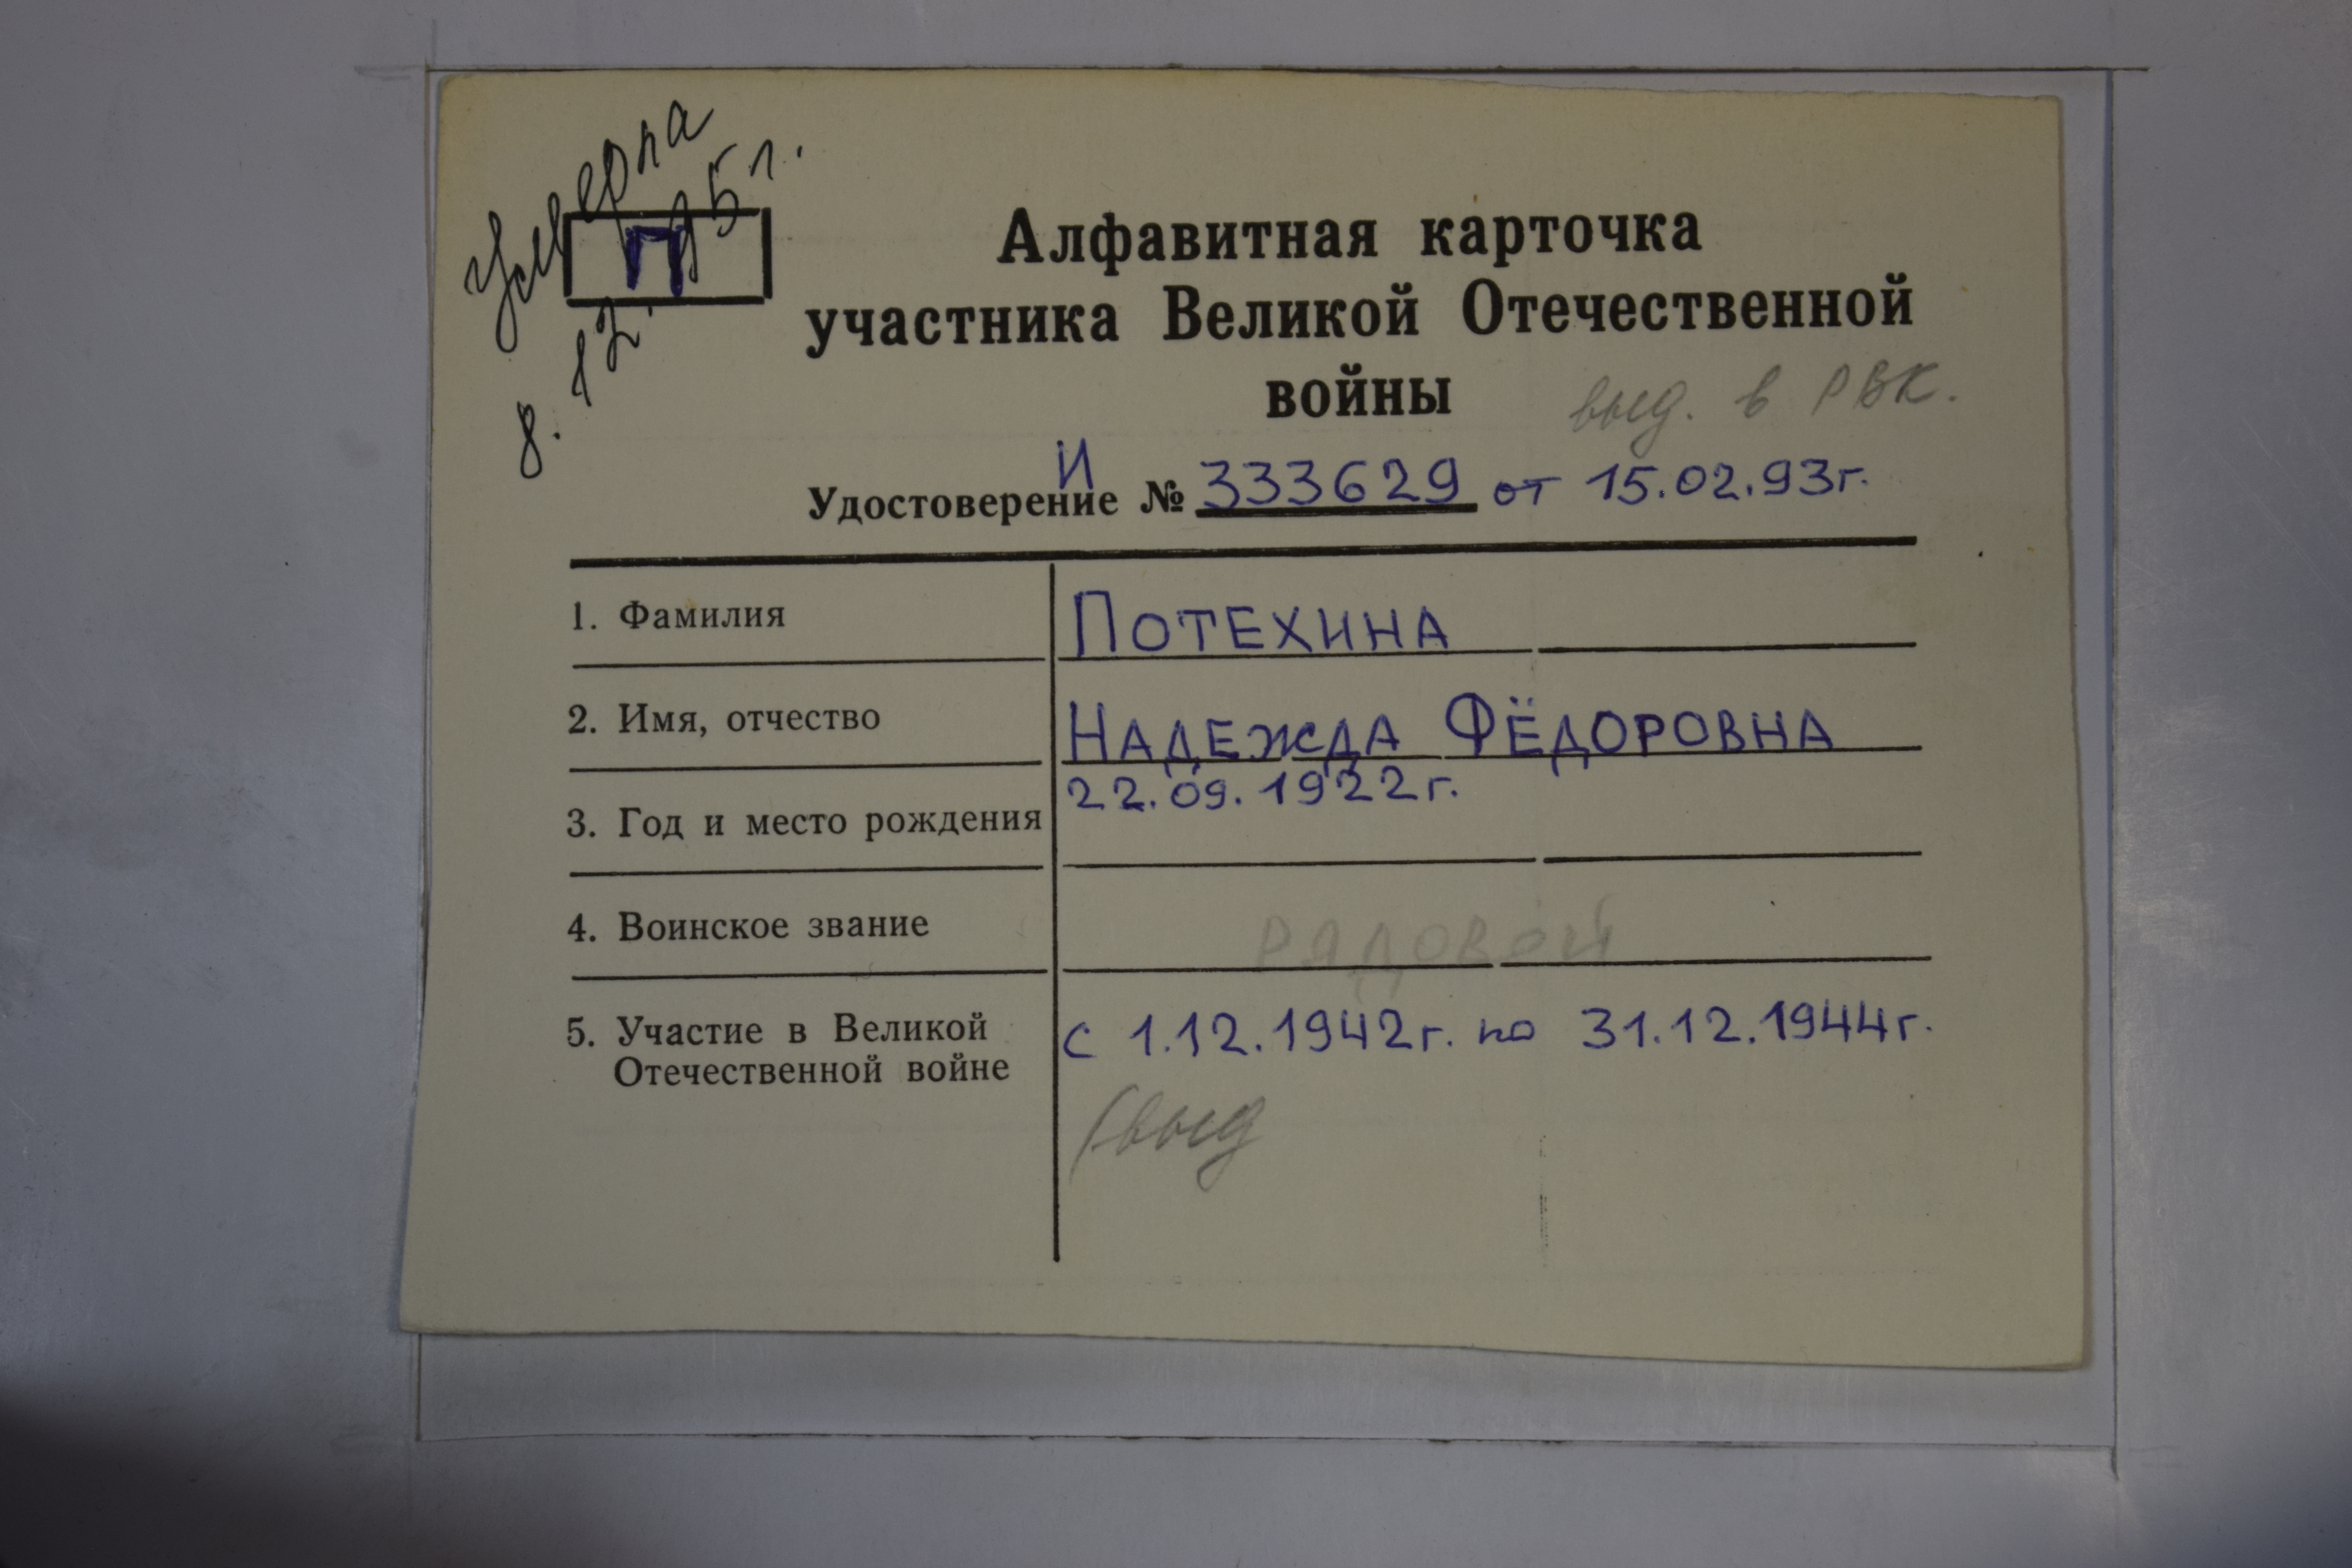 Умерла
8. 12. 95 г.
П
Алфавитная карточка
участника Великой Отечественной
войны
выд. в РВК.
Удостоверение И № 333629 от 15.02.93г.
1. Фамилия ПОТЕХИНА
2. Имя, отчество НАДЕЖДА ФЁДОРОВНА
3. Год и место рождения 22.09.1922г.
4. Воинское звание РЯДОВОЙ
5. Участие в Великой с 1.12.1942г. по 31.12.1944г.
Отечественной войне
(выд